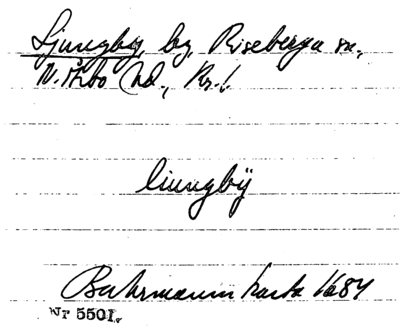 Ljungby, by, Riseberga sn,
N. Åsbo hd., Kr. l.
liungbÿ
Buhrmanns karta 1684
Nr 5501.